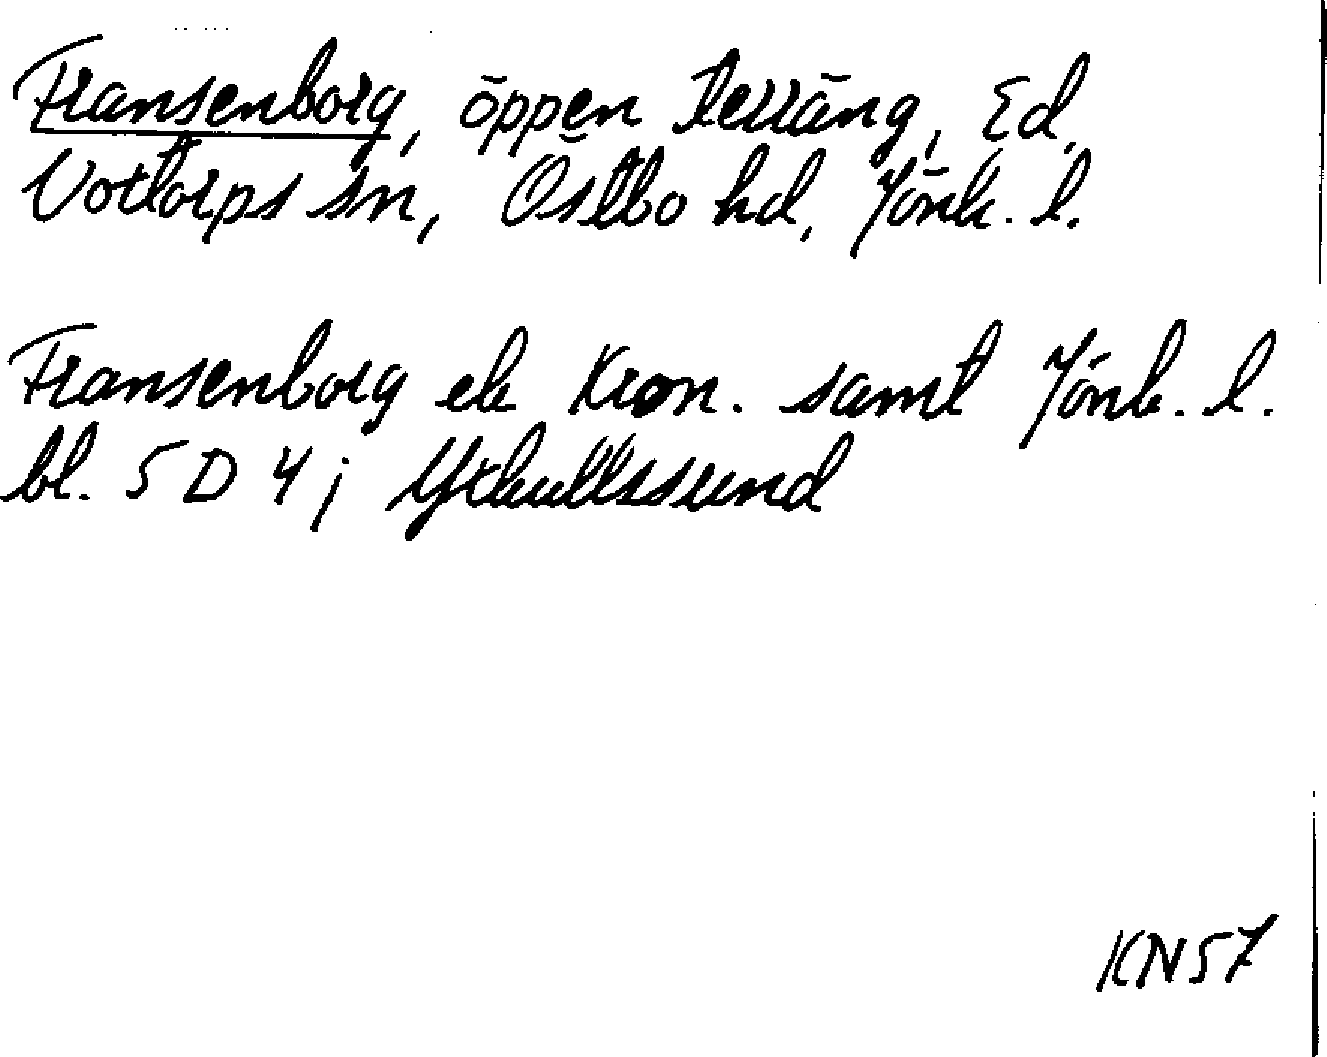 Fransenborg, öppen terräng, Ed,
Voxtorps sn, Östbo hd, Jönk. l.
Fransenborg ek Kron. samt Jönk. l.
bl. 5 D 4 j Yxkullssund
KN57